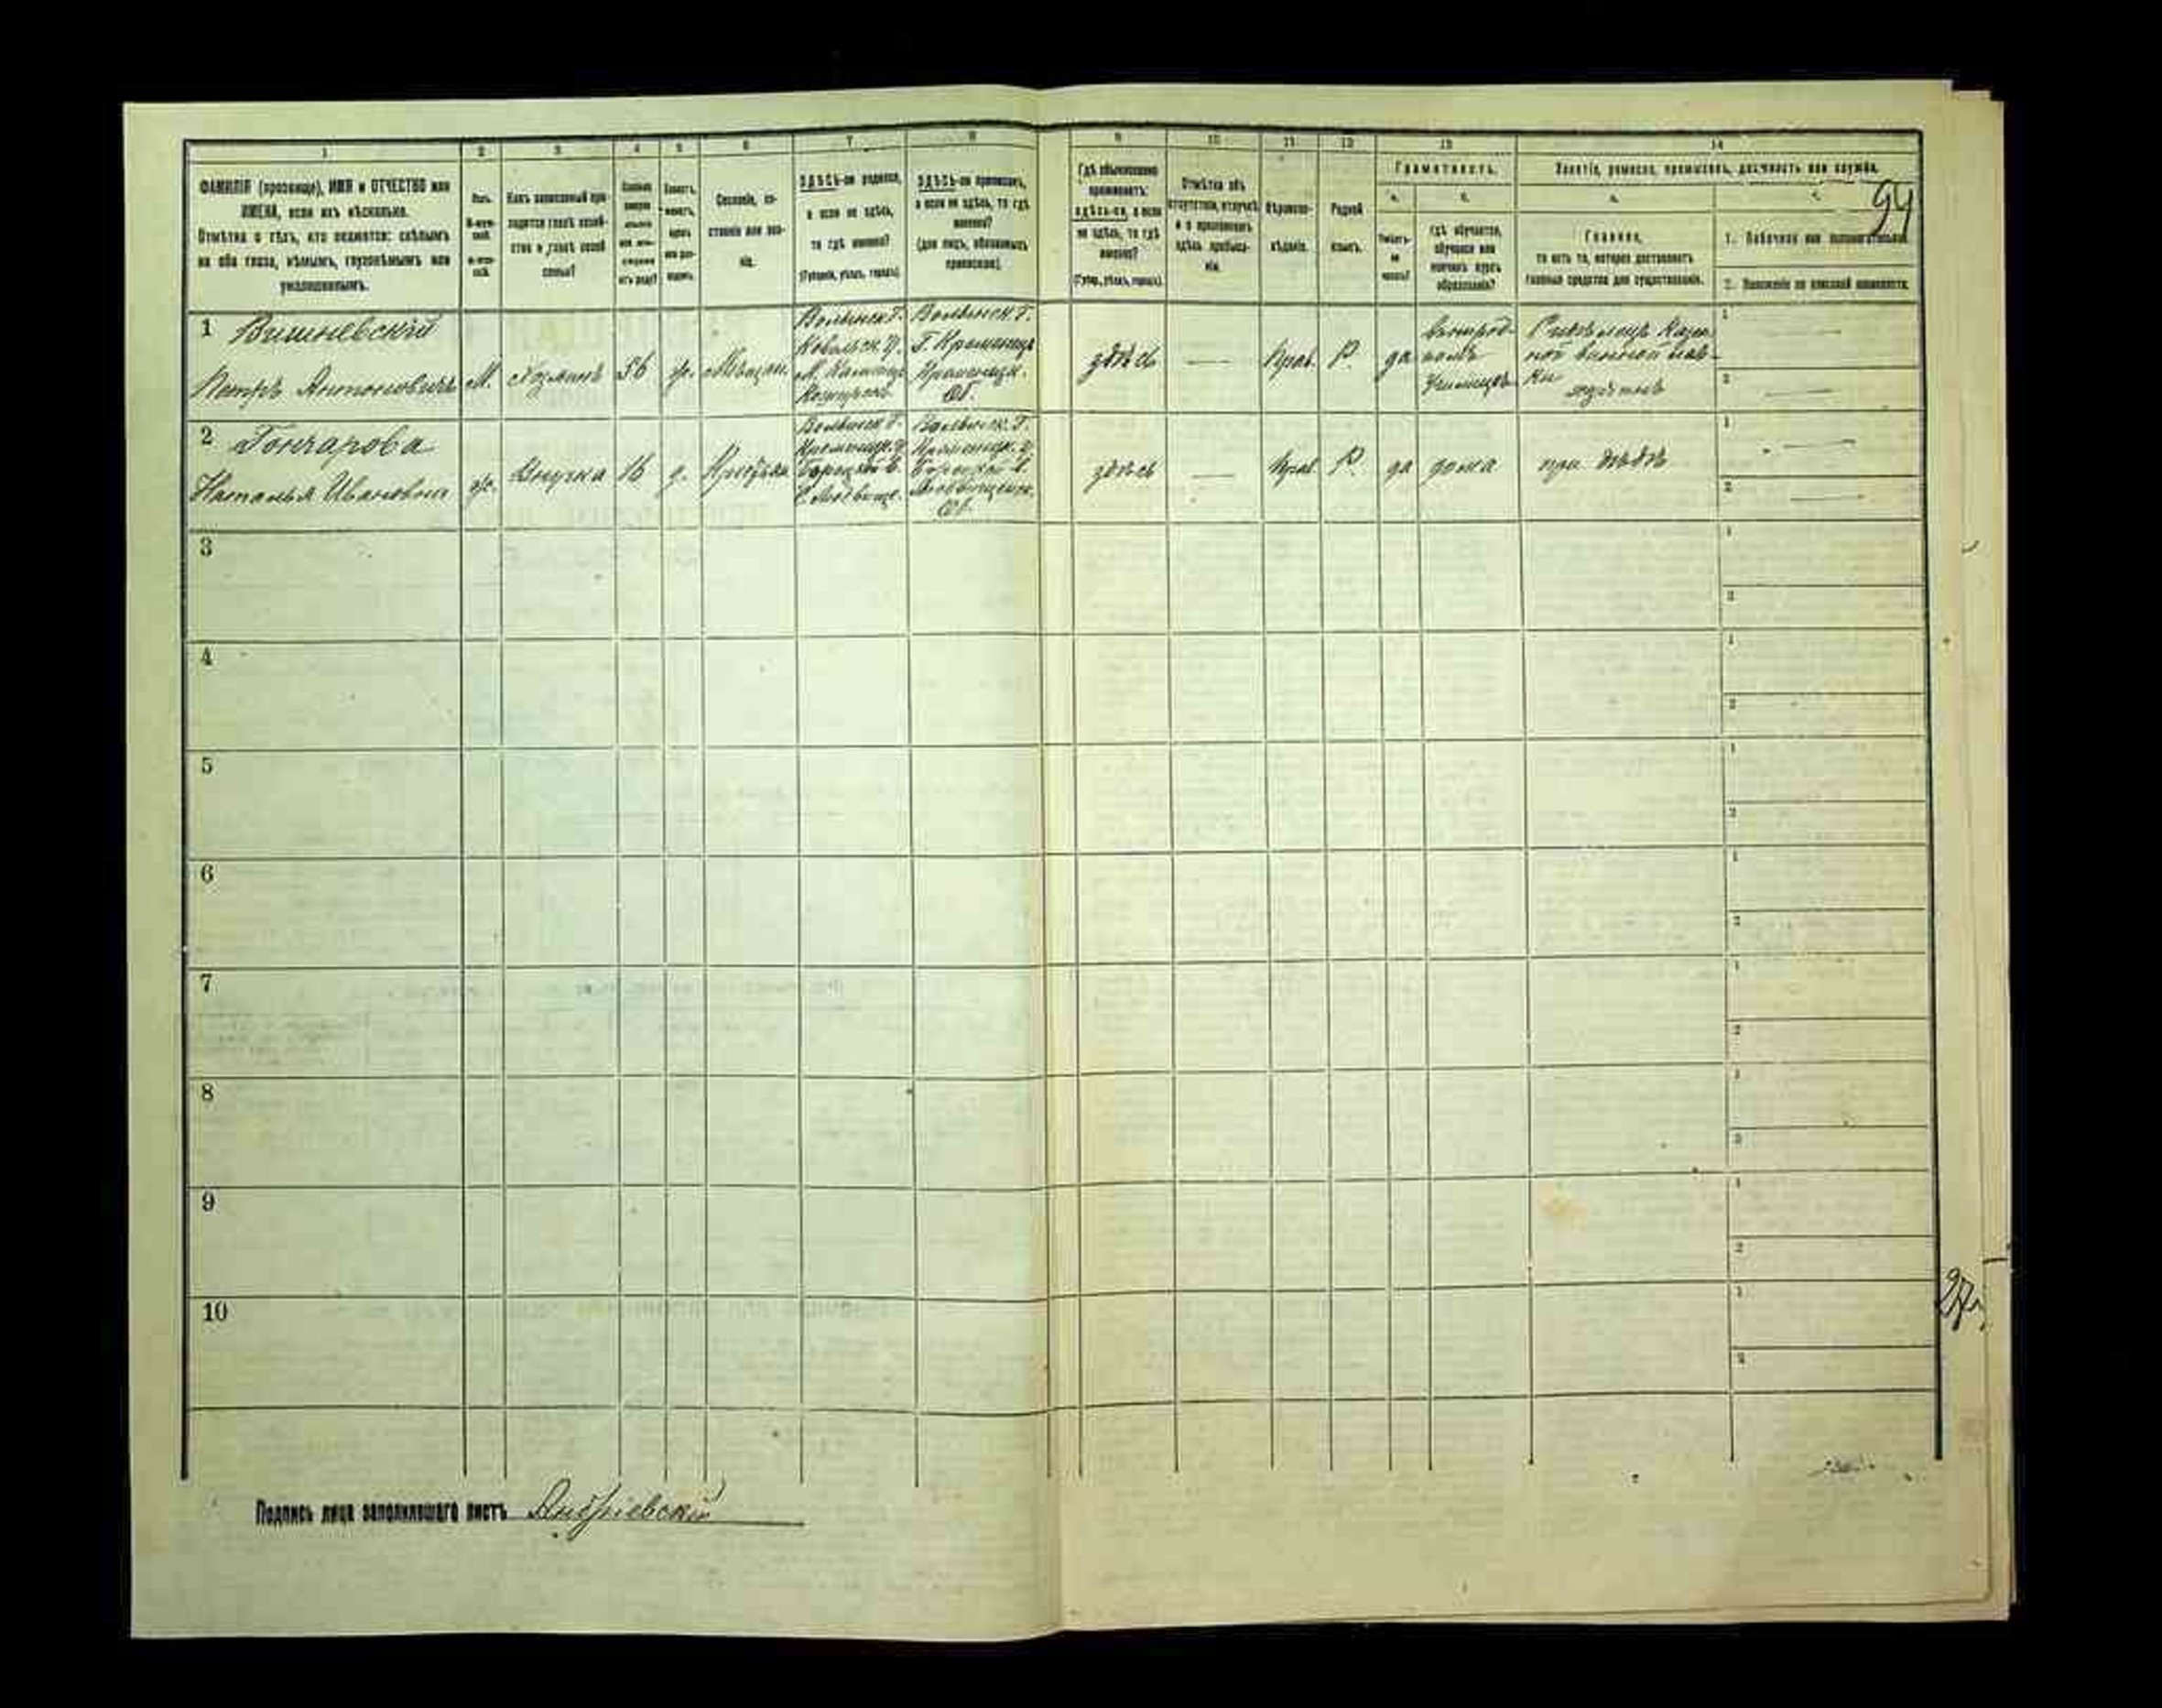 94
1 2 3 4 5 6 7 8 9 10 11 12 13 14
ФАМИЛІЯ (прозвище), ИМЯ и ОТЧЕСТВО или
ИМЕНА, если ихъ нѣсколько.
Отмѣтка о тѣхъ, кто окажется: слѣпымъ
на оба глаза, нѣмымъ, глухонѣмымъ или
умалишеннымъ.
Полъ.
Какъ записанный при-
ходится главѣ хозяй-
ства и главѣ своей
семьи?
Сословіе, со-
стояніе или зва-
ніе.
ЗДѢСЬ-ли родился,
а если не здѣсь,
то гдѣ именно?
(Губернія, уѣздъ, городъ).
ЗДѢСЬ-ли приписанъ,
а если не здѣсь, то гдѣ
именно?
(для лицъ, обязанныхъ
припискою).
Гдѣ обыкновенно
проживаетъ:
здѣсь-ли, а если
не здѣсь, то гдѣ
именно?
(Губер., уѣздъ, городъ).
Отмѣтка объ
отсутствіи, отлучкѣ
и о временномъ
здѣсь пребыва-
ніи.
Вѣроиспо-
вѣданіе.
Родной
языкъ.
Грамотность.
а. б.
Умѣетъ-
ли
читать?
гдѣ обучается,
обучался или
кончилъ курсъ
образованія?
Занятіе, ремесло, промыселъ, должность или служба.
Главное,
то есть то, которое доставляетъ
главныя средства для существованія.
1. Побочное или вспомогательное.
2. Положеніе по воинской повинности.
1 Вишневскій
Петръ Антоновичъ
М.
Хозяинъ
56
Мѣщан.
Волынск. Г.
Ковельск. У.
М. Камень
Волынск. Г.
Г. Кременец
здѣсь
—
Прав.
Р.
да
Училищѣ
Сидѣлецъ Казен
ной винной лав-
ки
2 Гончарова
Наталья Ивановна
ж.
Внучка
16
д.
Волынск. Г.
Кременецк. У.
Волынск. Г.
Кременецк. У.
здѣсь
—
Прав.
Р.
да
дома
при дѣдѣ
3
4
5
6
7
8
9
10
27
Подпись лица заполнившаго листъ Андріевскій